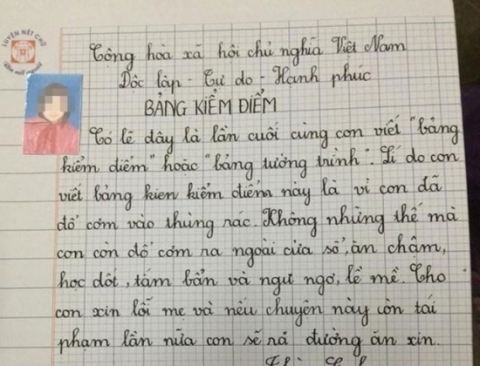 LUYỆN NÉT CHỮ
Cộng hòa xã hội chủ nghĩa Việt Nam
Dộc lập - Tự do - Hanh phúc
BẢNG KIỂM ĐIỂM
Có lẽ dây là lần cuối cùng con viết "bảng
kiểm diểm" hoặc "bảng tường trình". Lí do con
viết bảng kien kiểm diểm này là vì con đã
đổ cơm vào thùng rác. Không những thế mà
con còn đổ cơm ra ngoài cửa sổ, ăn chậm,
học dốt, tắm bẩn và ngu ngơ, lề mề. Cho
con xin lỗi mẹ và nếu chuyện này còn tái
phạm lần nữa con sẽ rả đường ăn xin.